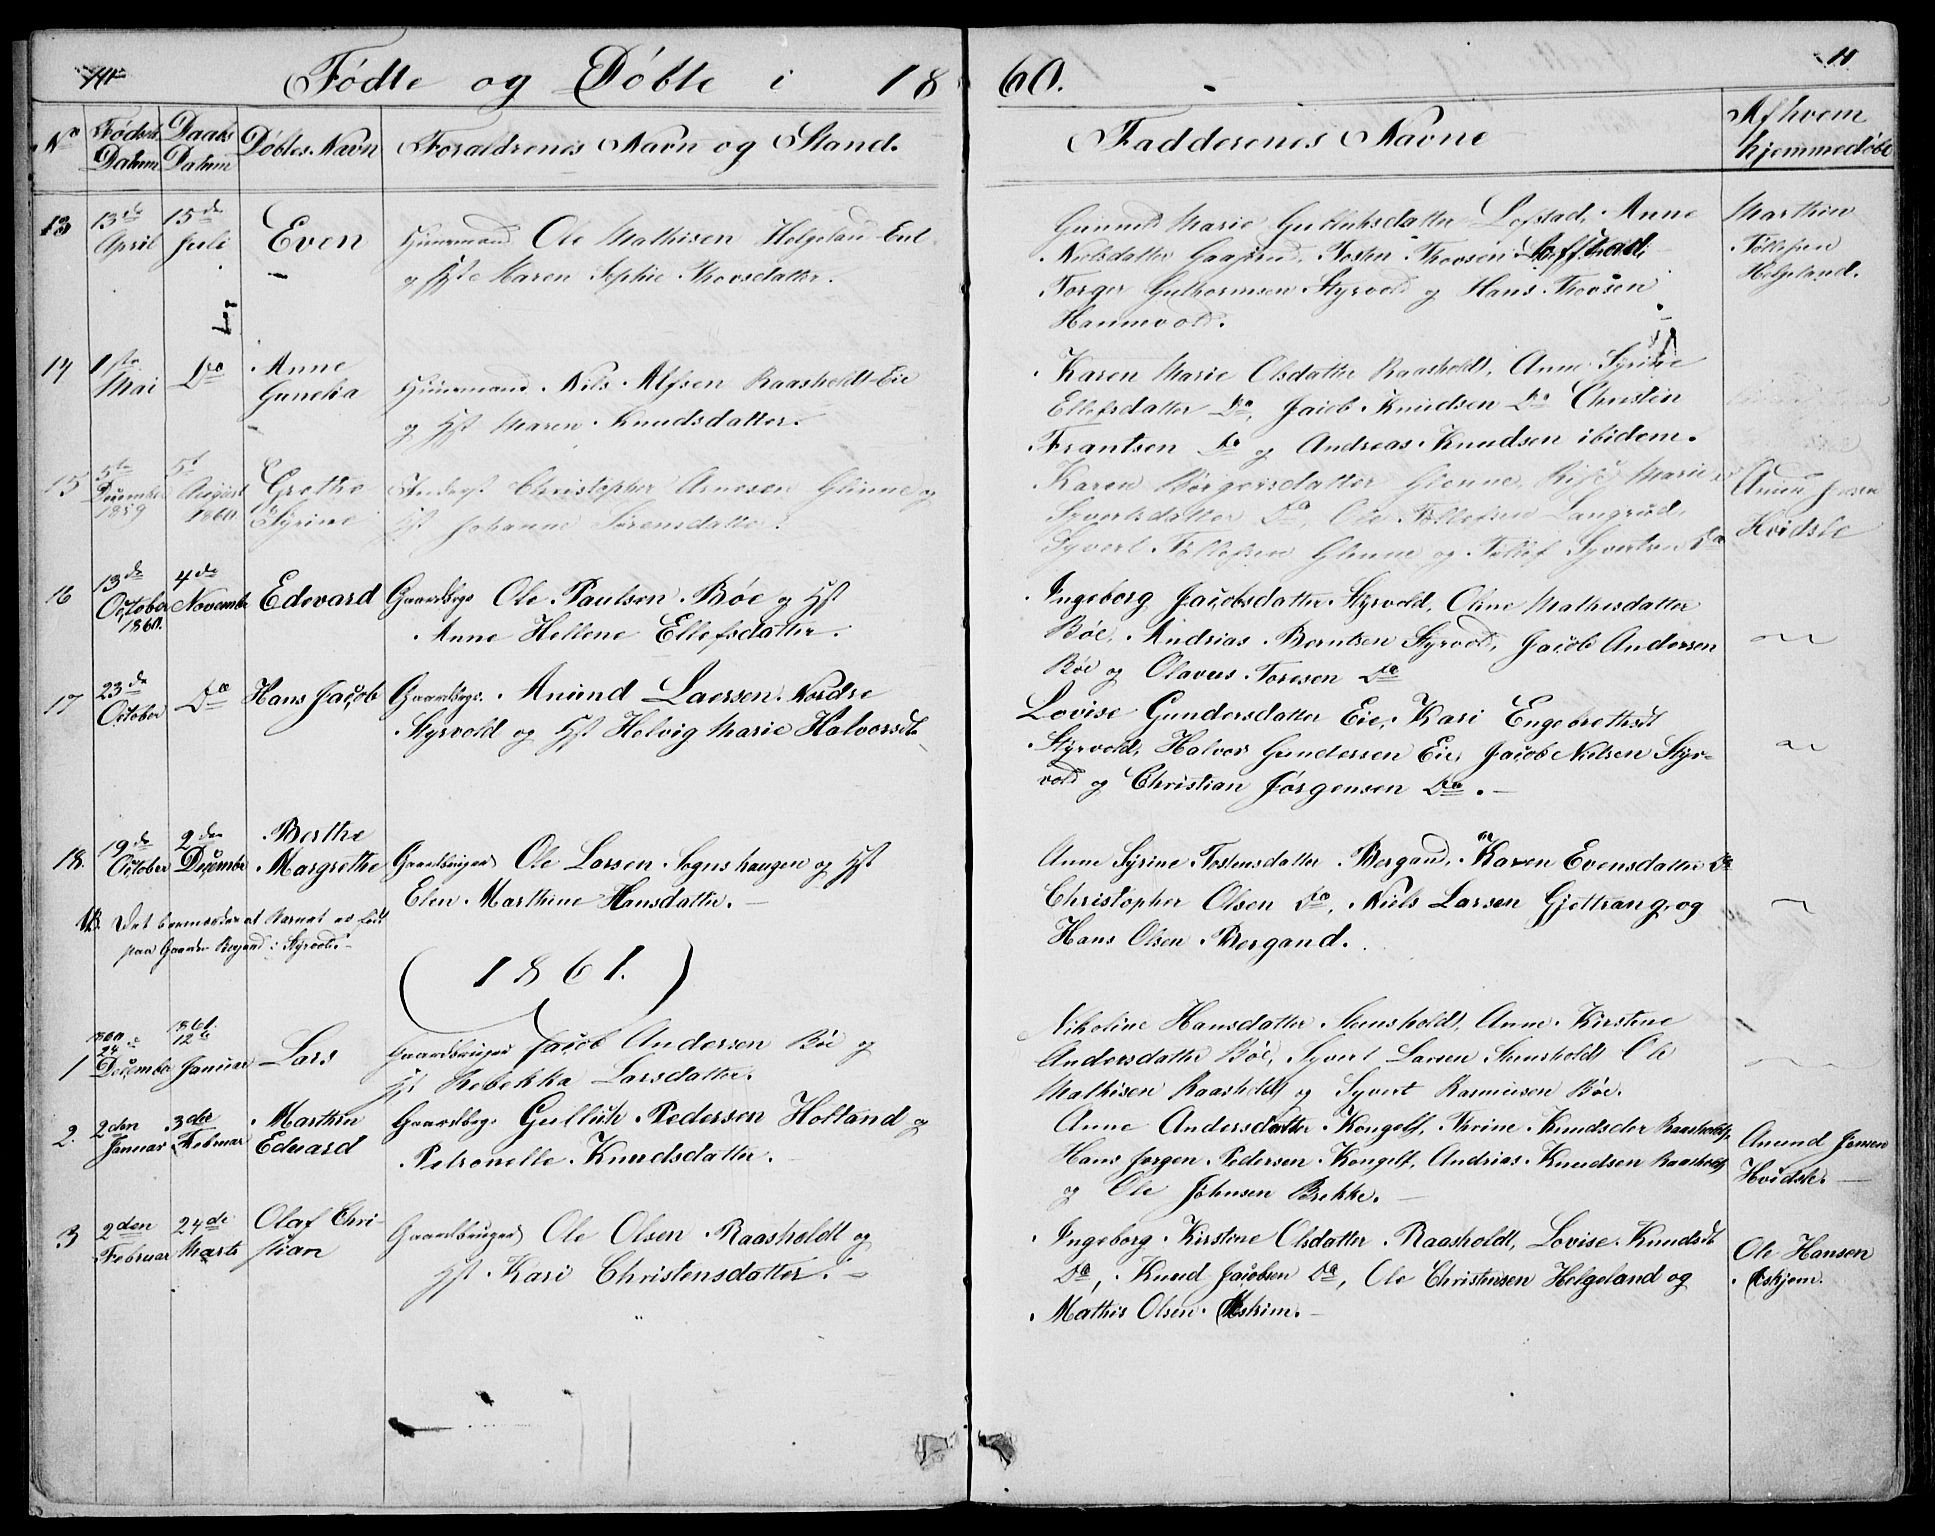 Fødte og Døbte i 1860.
11
No
Fødsels Datum
Daabs Datum
Døbtes Navn
Forældrenes Navn og Stand.
Faddernes Navne
Af hvem hjemmedøbt
13
13de April
15de Juli
Even
Huusmand Ole Mathisen Helgeland-Eie
og Hst Maren Sophie Thovsdatter.
Gunnild Marie Gulliksdatter Lofstad, Anne
Nielsdatter Tosten Thovsen Loffstad,
Torger Guthormsen Styrvold og Hans Thovsen
Hannevold.
Marthin
Tollefsen
Helgeland.
14
1ste Mai
Do
Anne
Gunelia
Huusmand Nils Alfsen Raasholdt-Eie
og Hst Maren Knudsdatter.
Karen Marie Olsdatter Raasholdt, Anne Syrine
Ellefsdatter Do, Jacob Knudsen Do Christin
Frantsen Do og Andreas Knudsen ibidem.
15
5te December 1859
5te August 1860
Grethe
Syrine
Christopher Arnesen Glenne og
Hst Johanne Sørensdatter.
Karen Børgersdatter Glenne, Marie
Syvertsdatter Do, Ole Tollefsen Langrud,
Syvert Tollefsen Glenne og Tollef Syvertsen Do
Anun Jensen
Hvidste
16
13de October 1860.
4de Novembr
Edevard
Gaardbrgr Ole Paulsen Bøe og Hst
Anne Hellene Ellefsdatter.
Ingeborg Jacobsdatter Styrvold, Oline Mathisdatter
Bøe, Andrias Berntsen Styrvold, Jacob Andersen
Bøe og Olavus Toresen Do
17
23de October
Do
Hans Jacob
Gaardbrgr. Anund Laersen Nordre
Styrvold og Hst Helvig Marie Halvorsdt.
Lovise Gundersdatter Eie, Kari Engebrethsdt
Styrvold, Halvor Gundersen Eie, Jacob Nilsen Styr-
vold og Christian Jørgensen Do.
18.
19de October
2den Decembr
Berthe
Margrethe
Gaardbruger Ole Larsen Sognshaugen og Hst
Elen Marthine Hansdatter.
Anne Syrine Tostensdatter Bergand, Karen Evensdatter Do
Christopher Olsen Do, Niels Larsen Gjettrang, og
Hans Olsen Bergand.
18. Det bemærkes at Barnet er født
paa Gaarden Bergand i Styrvold.
1861.
1
1860 24de Decembr
1861. 12te Januar
Lars
Gaardbruger Jacob Andersen Bøe og
Hst Rebekka Larsdatter.
Nikoline Hansdatter Steensholdt, Anne Kirstine
Andersdatter Bøe, Syvert Larsen Steensholdt Ole
Mathisen Raasholdt og Syvert Rasmusen Bøe.
2.
2den Januar
3die Februar
Marthin
Eduard
Gaardbrgr Gullik Pedersen Holland og
Petronelle Knudsdatter.
Anne Andersdatter Kongelf, Thrine Knudsdtr Raasholdt,
Hans Jørgen Pedersen Kongelf, Andrias Knudsen Raasholdt
og Ole Johnsen Brekke.
Anund Jensen
Hvidste.
3
2den Februar
24de Marts
Olaf Chri-
stian
Gaardbruger Ole Olsen Raasholdt og
Hst Kari Christensdatter.
Ingeborg Kirstine Olsdatter Raasholdt, Lovise Knudsdt
Do, Knud Jacobsen Do, Ole Christensen Helgeland og
Mathis Olsen Askim.
Ole Hansen
Askjem.